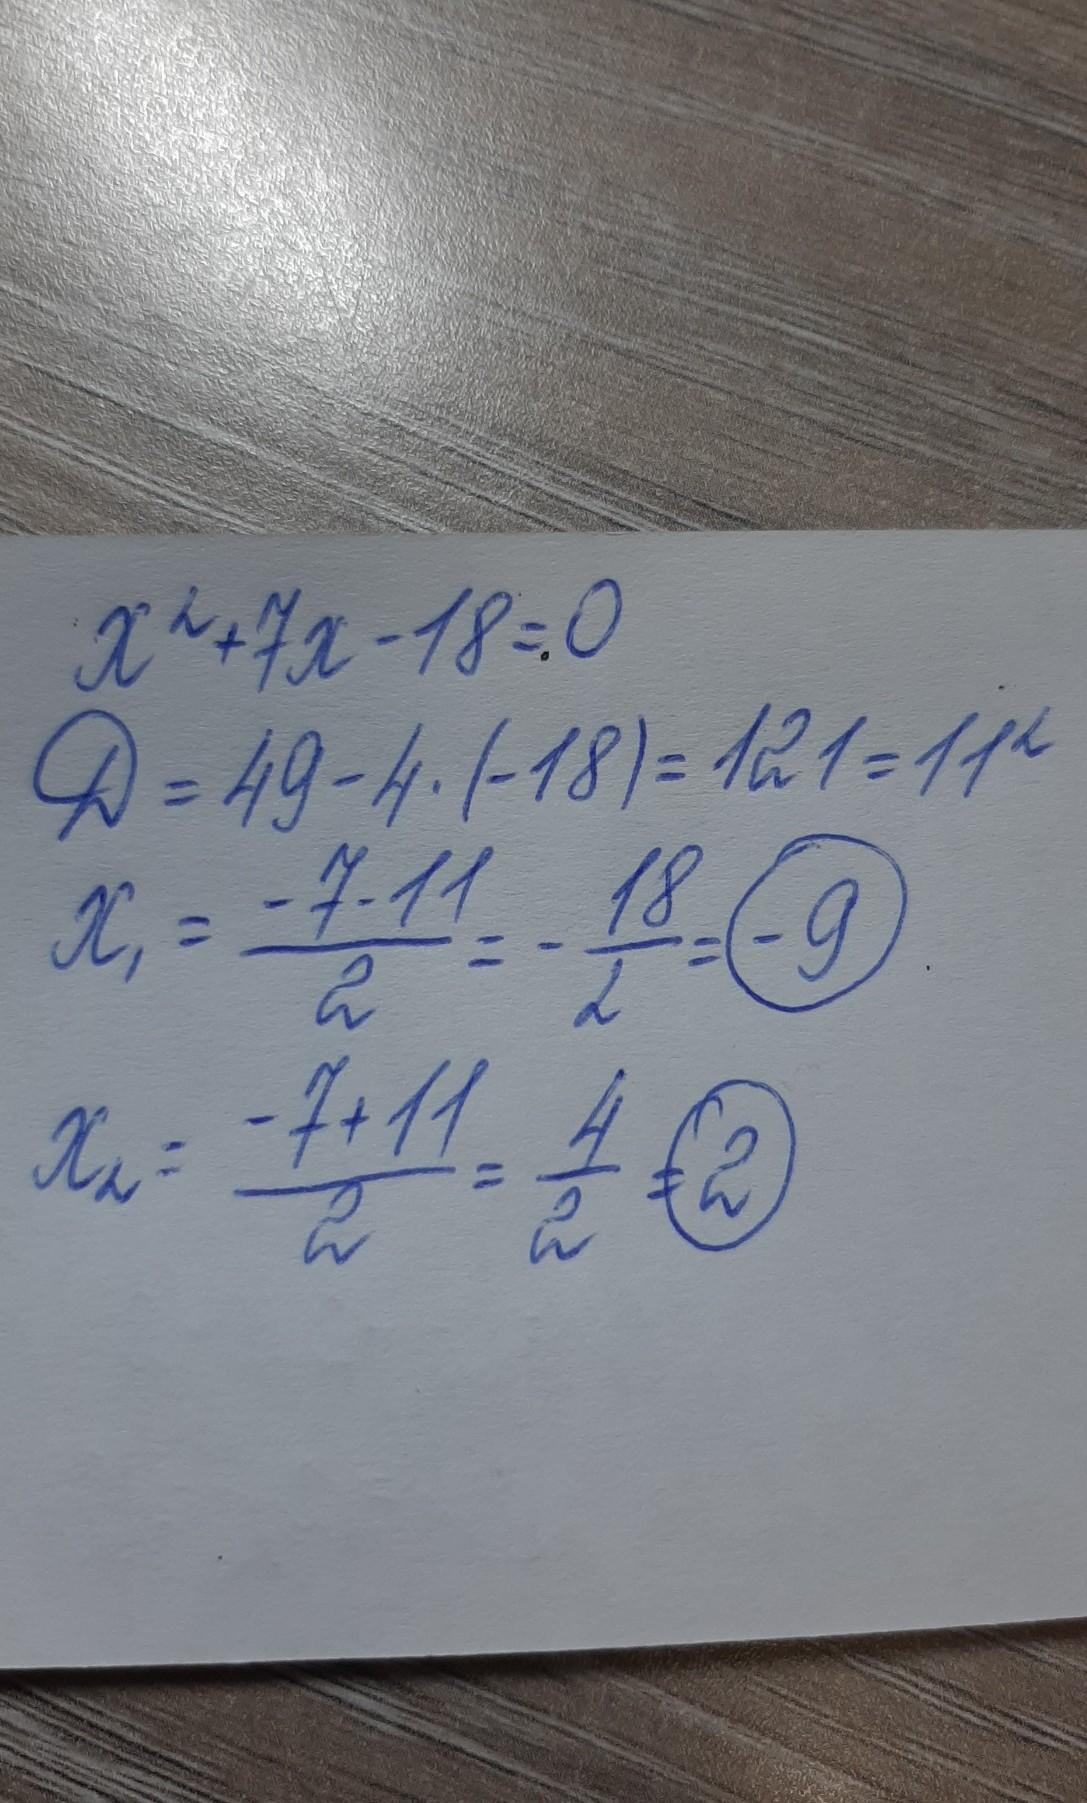 x² + 7x - 18 = 0
D = 49 - 4 · (-18) = 121 = 11²
x₁ = (-7 - 11)/2 = -18/2 = -9
x₂ = (-7 + 11)/2 = 4/2 = 2